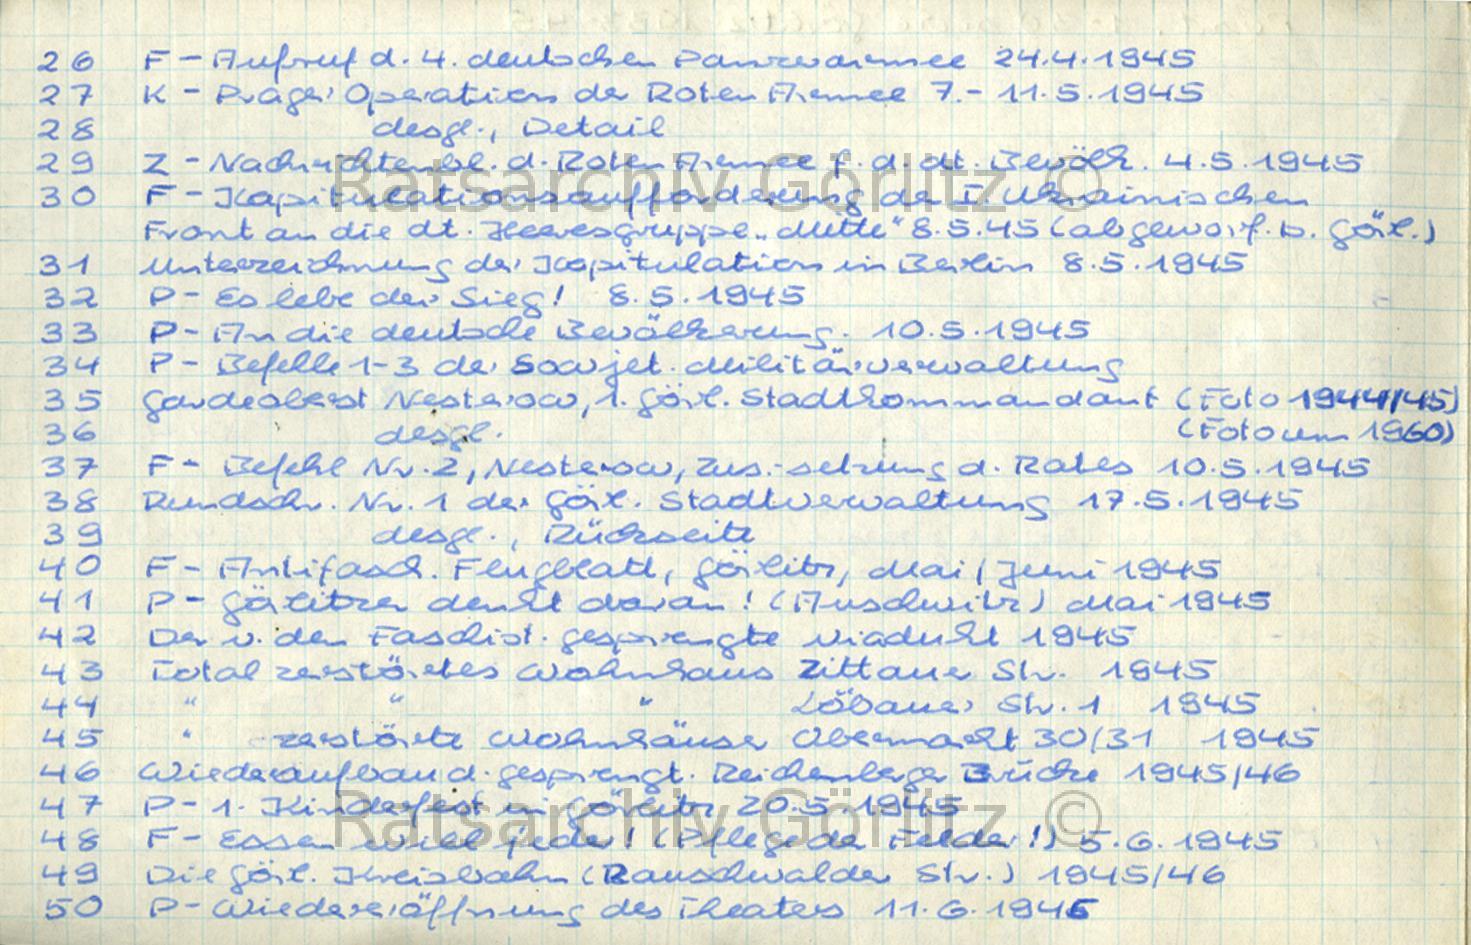 26 F - Aufruf d. 4. deutschen Panzerarmee 24.4.1945
27 K - Prager Operation der Roten Armee 7.- 11.5.1945
28 desgl., Detail
29 Z - Nachrichtenbl. d. Roten Armee f. d. dt. Bevölk. 4.5.1945
Ratsarchiv Görlitz ©
30 F - Kapitulationsaufforderung der I. Ukrainischen
Front an die dt. Heeresgruppe „Mitte" 8.5.45 (abgeworf. b. Görl.)
31 Unterzeichnung der Kapitulation in Berlin 8.5.1945
32 P - Es lebe der Sieg! 8.5.1945
33 P - An die deutsche Bevölkerung. 10.5.1945
34 P - Befehle 1-3 der Sowjet. Militärverwaltung
35 Gardeoberst Nesterow, 1. Görl. Stadtkommandant (Foto 1944/45)
36 desgl. (Foto um 1960)
37 F - Befehl Nr. 2, Nesterow, Zus.-setzung d. Rates 10.5.1945
38 Rundschr. Nr. 1 der Görl. Stadtverwaltung 17.5.1945
39 desgl., Rückseite
40 F - Antifasch. Flugblatt, Görlitz, Mai/Juni 1945
41 P - Görlitzer denkt daran! (Auschwitz) Mai 1945
42 Der v. den Faschist. gesprengte Viadukt 1945
43 Total zerstörtes Wohnhaus Zittauer Str. 1945
44 " " " Löbauer Str. 1 1945
45 " zerstörte Wohnhäuser Obermarkt 30/31 1945
46 Wiederaufbau d. gesprengt. Reichenberger Brücke 1945/46
47 P - 1. Kinderfest in Görlitz 20.5.1945
Ratsarchiv Görlitz ©
48 F - Essen will jeder! (Pflege der Felder!) 5.6.1945
49 Die Görl. Kreisbahn (Rauschwalder Str.) 1945/46
50 P - Wiedereröffnung des Theaters 11.6.1945